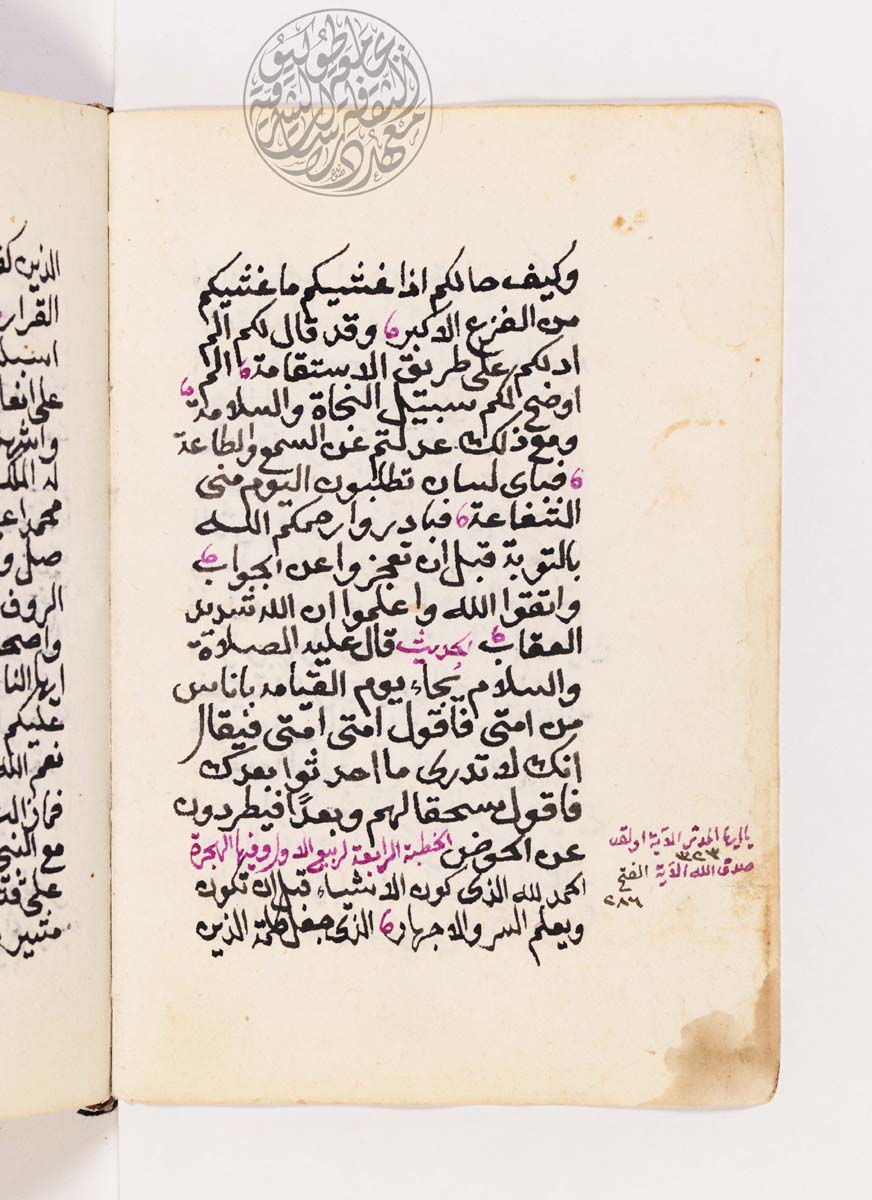 وكيف حالكم اذا غشيكم ما غشيكم
من الفزع الاكبر وقد قال لكم الم
ادلكم على طريق الاستقامة الم
اوضح لكم سبيل النجاة والسلامة
ومع ذلك عدلتم عن السمع والطاعة
فباى لسان تطلبون اليوم منى
الشفاعة فبادروا رحمكم الله
بالتوبة قبل ان تعجزوا عن الجواب
واتقوا الله واعلموا ان الله شديد
العقاب الحديث قال عليه الصلاة
والسلام يُجاء يوم القيامة باناس
من امتى فاقول امتى امتى فيقال
انك لا تدرى ما احدثوا بعدك
فاقول سحقا لهم وبعدًا فيطردون
عن الحوض الخطبة الرابعة لربيع الاول وفيها الهجرة
الحمد لله الذى كون الاشياء قبل ان تكون
ويعلم السر والاجهار الذى جعل كلمة الذين
ياايها المدثر الآية او لقد
٣٢٣
صدق الله الآية الفتح
٢٨٦
الذين
القرار
على
له الملك
صل و
عليكم
نعم الله
مع النبي